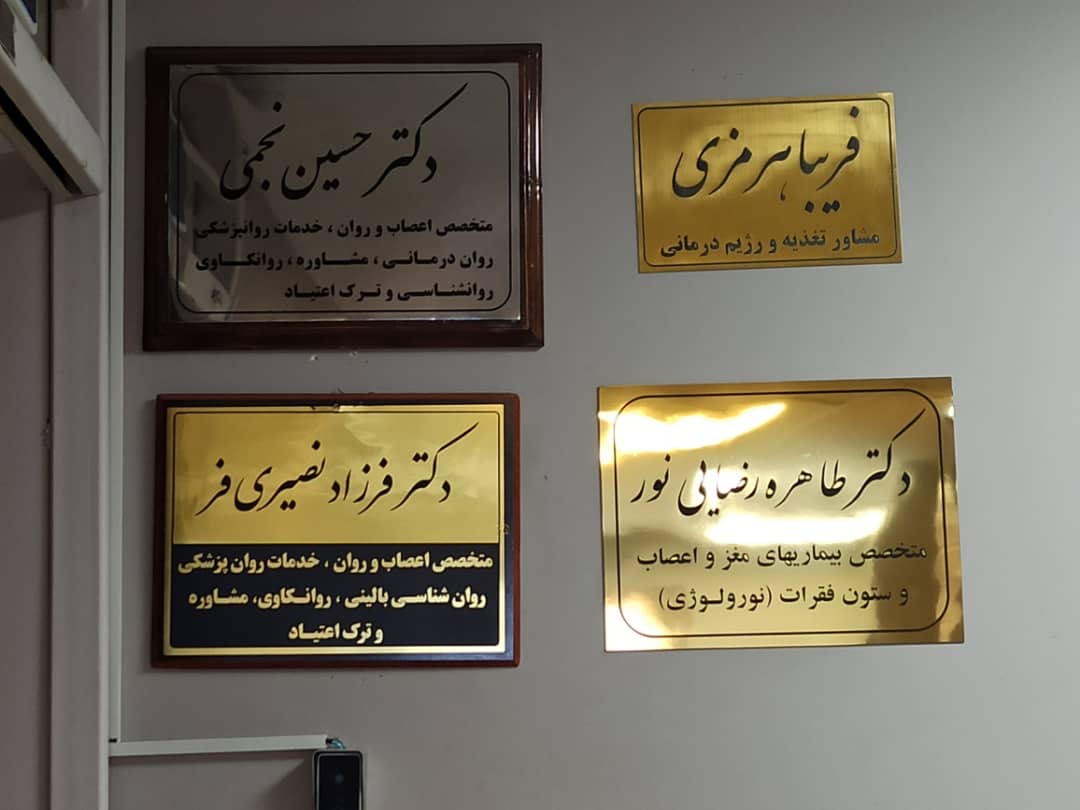 دکتر حسین نجمی
متخصص اعصاب و روان ، خدمات روانپزشکی
روان درمانی ، مشاوره ، روانکاوی
روانشناسی و ترک اعتیاد
فریبا هرمزی
مشاور تغذیه و رژیم درمانی
دکتر فرزاد نصیری فر
متخصص اعصاب و روان ، خدمات روان پزشکی
روان شناسی بالینی ، روانکاوی، مشاوره
و ترک اعتیاد
دکتر طاهره رضایی نور
متخصص بیماریهای مغز و اعصاب
و ستون فقرات (نورولوژی)